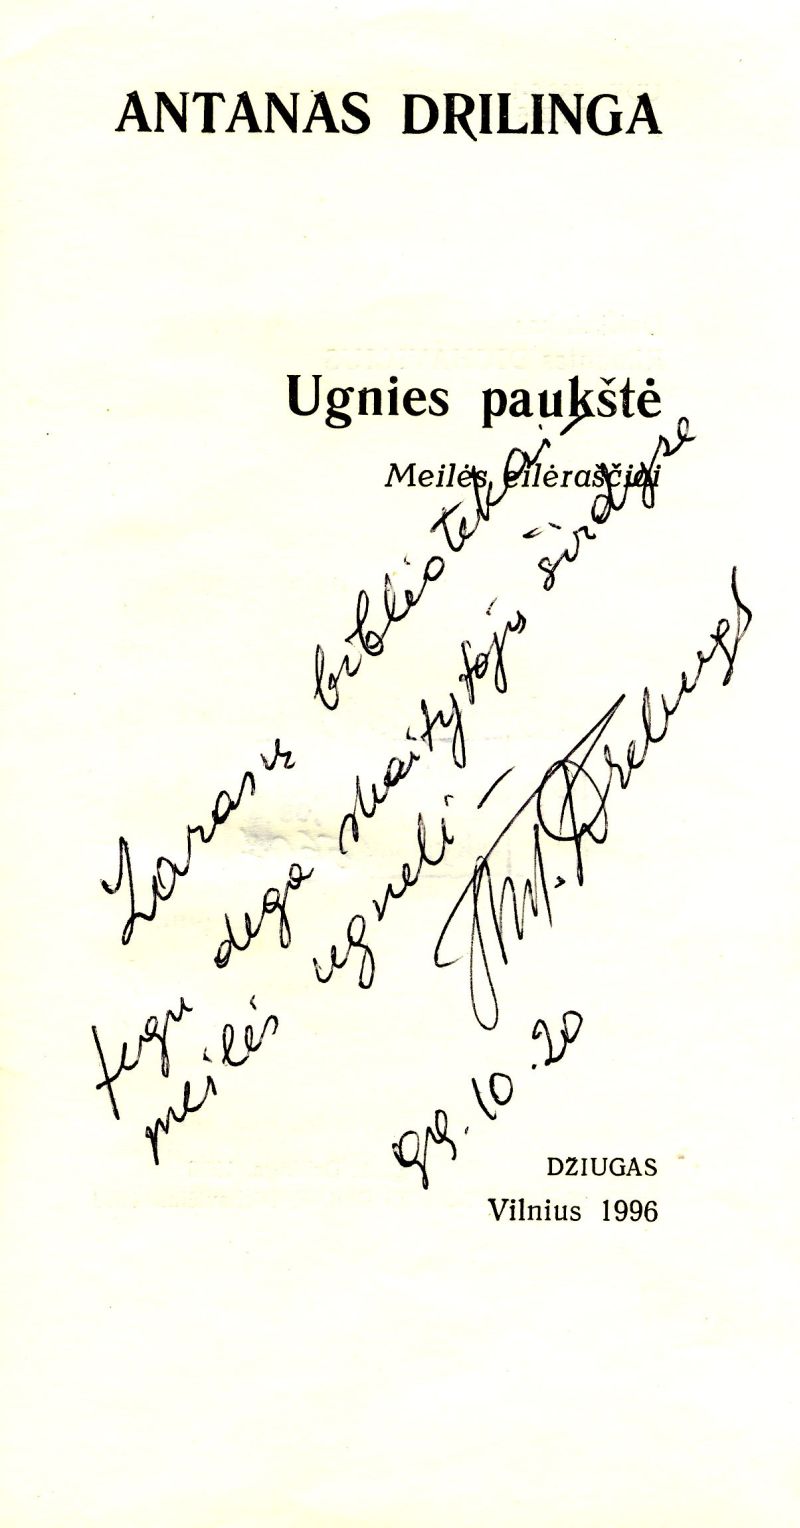 ANTANAS DRILINGA
Ugnies paukštė
Meilės eilėraščiai
Zarasų bibliotekai –
tegu dega skaitytojų širdyse
meilės ugnelė –
Ant. Drilinga
99.10.20
DŽIUGAS
Vilnius 1996